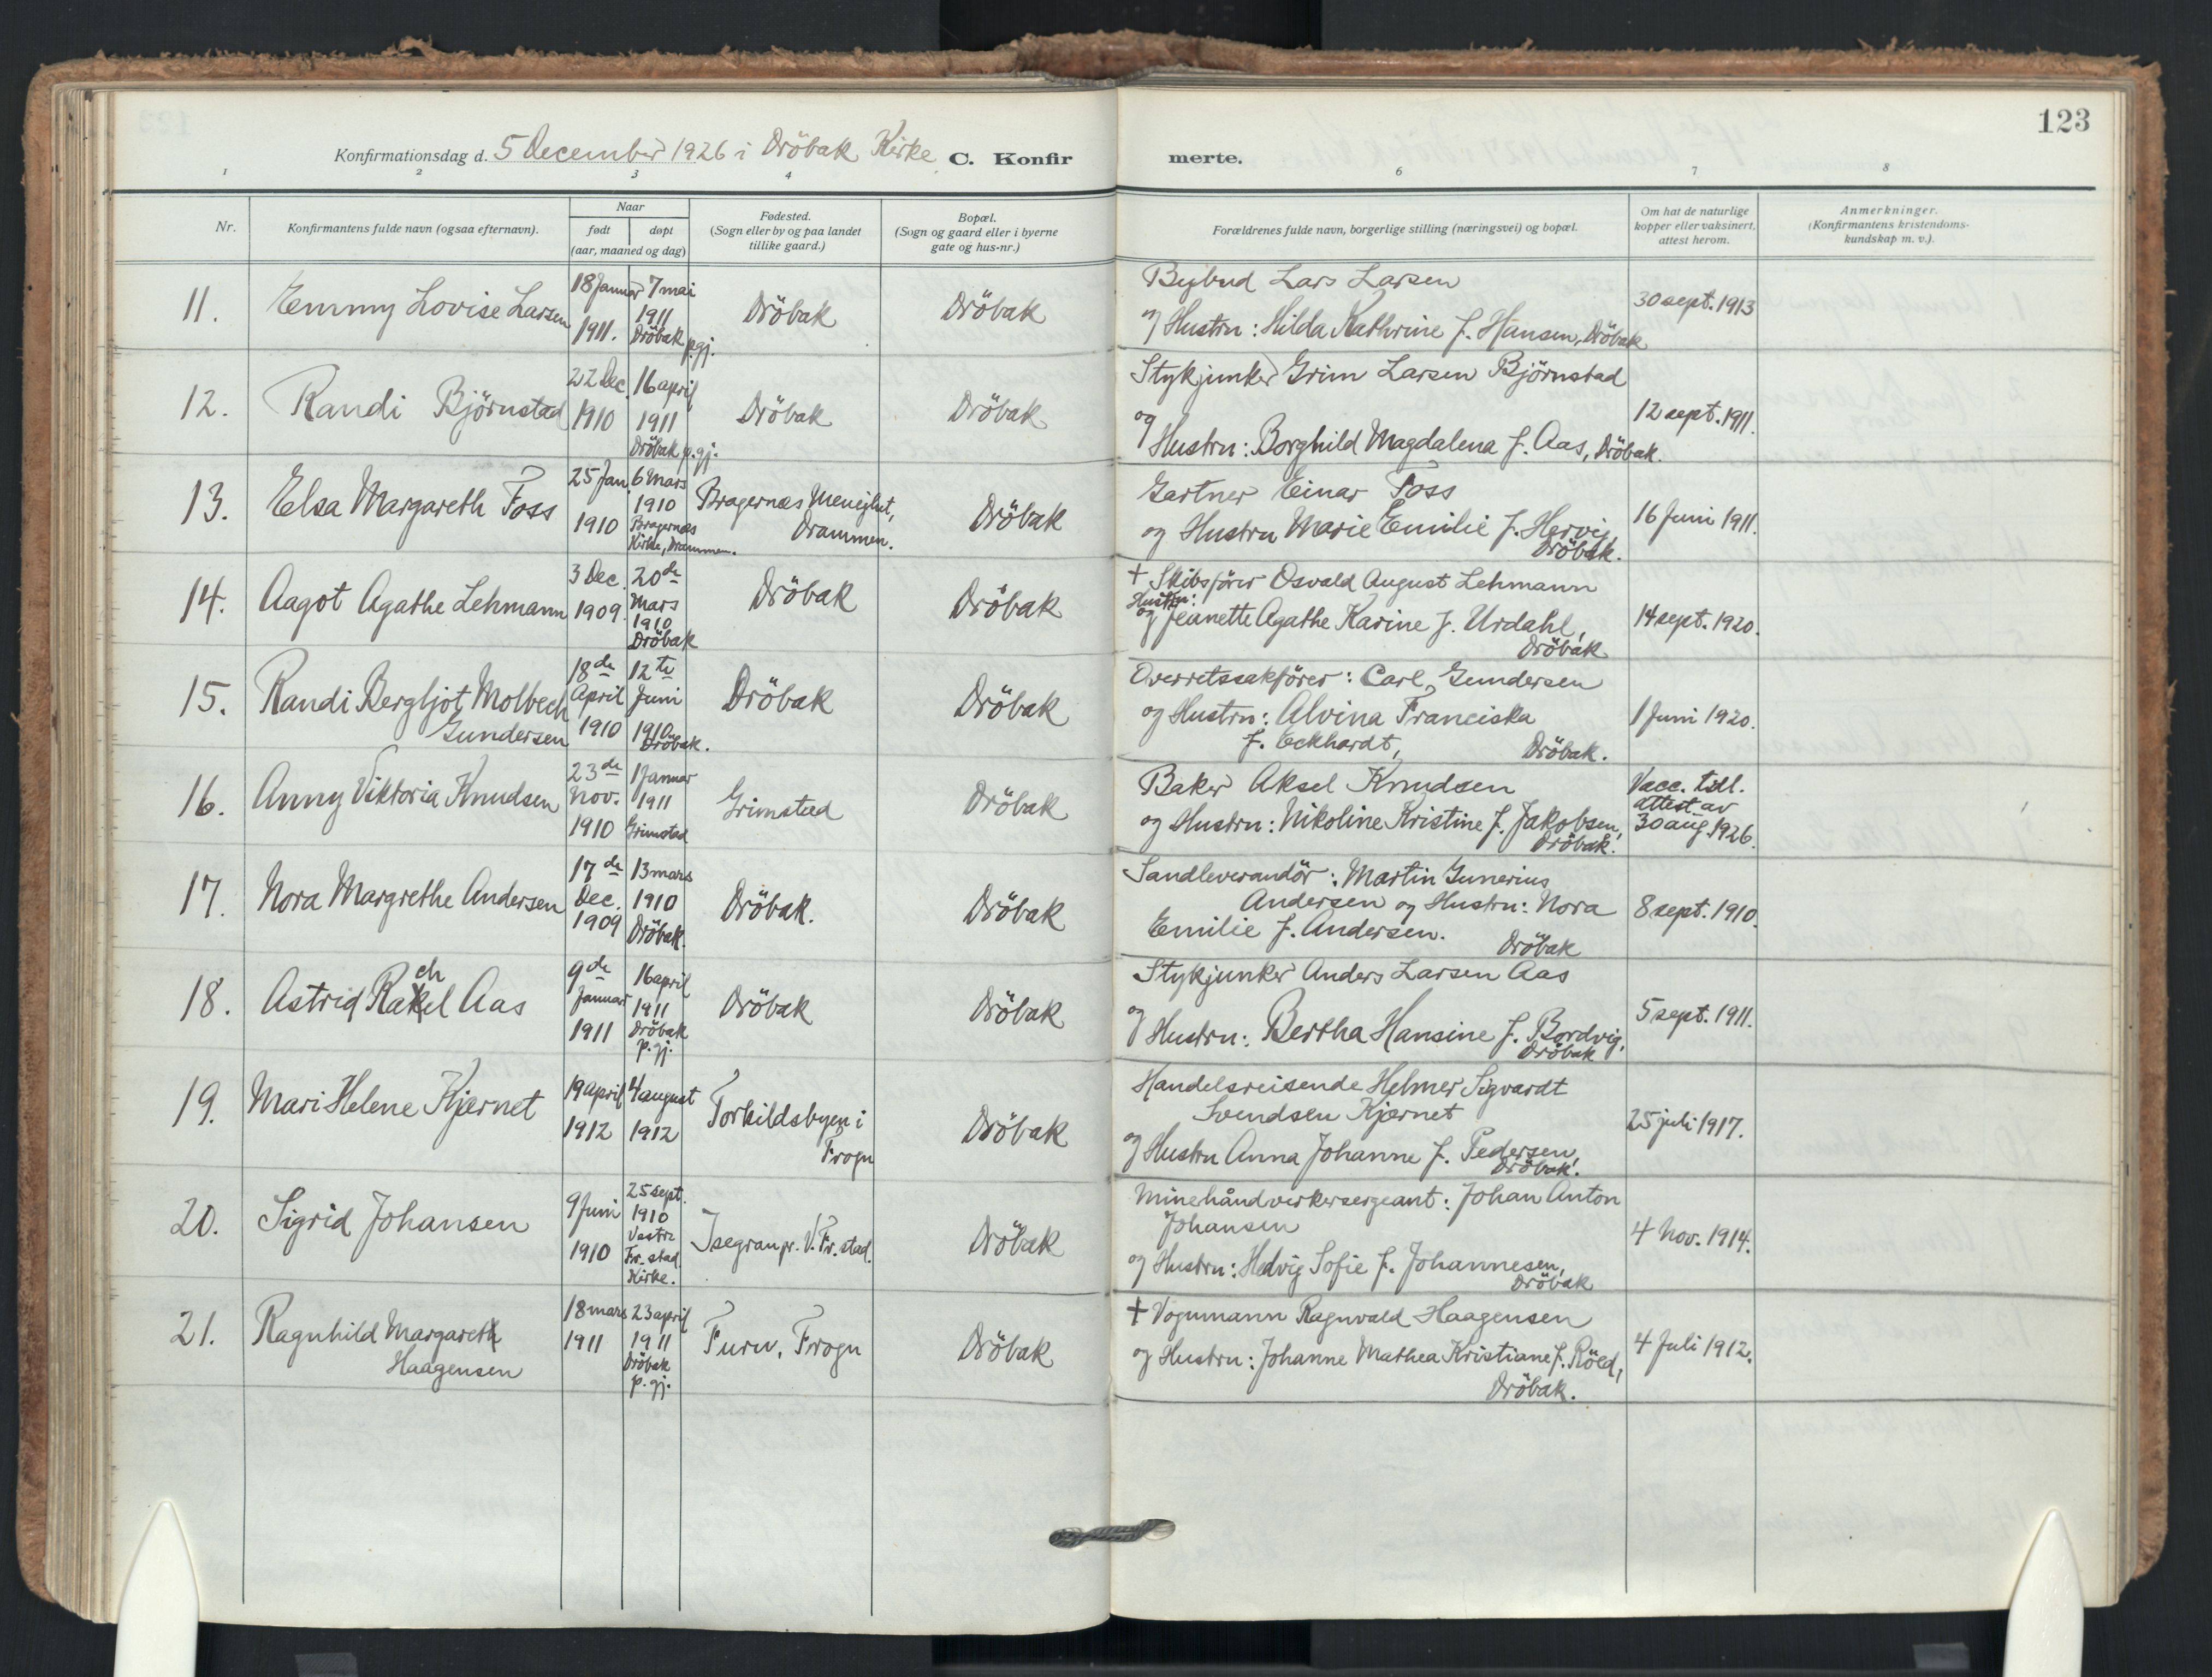 123
Konfirmationsdag d. 5 December 1926 i Dröbak Kirke C. Konfirmerte.
1 2 3 4 6 7 8
Nr.
Konfirmantens fulde navn (ogsaa efternavn).
Naar
født
døpt
(aar, maaned og dag)
Fødested.
(Sogn eller by og paa landet
tillike gaard.)
Bopæl.
(Sogn og gaard eller i byerne
gate og hus-nr.)
Forældrenes fulde navn, borgerlige stilling (næringsvei) og bopæl.
Om hat de naturlige
kopper eller vaksinert,
attest herom.
Anmerkninger.
(Konfirmantens kristendoms-
kundskap m. v.).
11. Emmy Lovise Larsen
18 Januar
1911.
7 mai
1911
Dröbak p.gj.
Dröbak
Dröbak
Bybud Lars Larsen
og Hustru: Hilda Kathrine f. Hansen, Dröbak
30 sept. 1913
12. Randi Björnstad
22 Dec.
1910
16 april
1911
Dröbak p.gj.
Dröbak
Dröbak
Stykjunker Grim Larsen Björnstad
og
Hustru: Borghild Magdalena f. Aas, Dröbak.
12 sept. 1911.
13. Elsa Margareth Foss
25 Jan.
1910
6 Mars
1910
Bragernæs
Kirke, Drammen.
Bragernæs Menighet,
Drammen.
Dröbak
Gartner Einar Foss
og Hustru Marie Emilie f. Hervig,
Dröbak.
16 Juni 1911.
14. Aagot Agathe Lehmann
3 Dec.
1909
20de
Mars
1910
Dröbak
Dröbak
Dröbak
† Skibsförer Osvald August Lehmann
Hustru:
og Jeanette Agathe Karine f. Urdahl,
Dröbak
14 sept. 1920.
15. Randi Bergljot Molbech
Gundersen
18de
April
1910
12te
Juni
1910
Dröbak.
Dröbak
Dröbak
Overretssakförer: Carl Gundersen
og Hustru: Alvina Franciska
f. Eckhardt,
Dröbak.
1 Juni 1920.
16. Anny Viktoria Knudsen
23de
Nov.
1910
1 Januar
1911
Grimstad
Grimstad
Dröbak
Baker Aksel Knudsen
og Hustru: Nikoline Kristine f. Jakobsen,
Dröbak.
Vacc. tsdl.
attest av
30 aug. 1926.
17. Nora Margrethe Andersen
17de
Dec.
1909
13 mars
1910
Dröbak.
Dröbak.
Dröbak
Sandleverandör: Martin Gunerius
Andersen og Hustru: Nora
Emilie f. Andersen.
Dröbak
8 sept. 1910.
18. Astrid Rachel Aas
9de
Januar
1911
16 april
1911
Dröbak
p.gj.
Dröbak
Dröbak
Stykjunker Anders Larsen Aas
og
Hustru: Bertha Hansine f. Bordvig,
Dröbak
5 sept. 1911.
19. Mari Helene Kjærnet
19 april
1912
4 august
1912
Torkildsbyen i
Frogn
Dröbak
Handelsreisende Helmer Sigvardt
Svendsen Kjærnet
og Hustru Anna Johanne f. Pedersen,
Dröbak.
25 juli 1917.
20. Sigrid Johansen
9 Juni
1910
25 sept.
1910
Vestre
Fr. stad
Kirke.
Isegran pr. V. Fr. stad.
Dröbak
Minehåndverkersergeant: Johan Anton
Johansen
og Hustru: Hedvig Sofie f. Johannesen,
Dröbak
4 Nov. 1914.
21. Ragnhild Margaret
Haagensen
18 mars
1911
23 april
1911
Dröbak
p.gj.
Furu, Frogn
Dröbak
† Vognmann Ragnvald Haagensen
og Hustru: Johanne Mathea Kristiane f. Röed,
Dröbak.
4 Juli 1912.